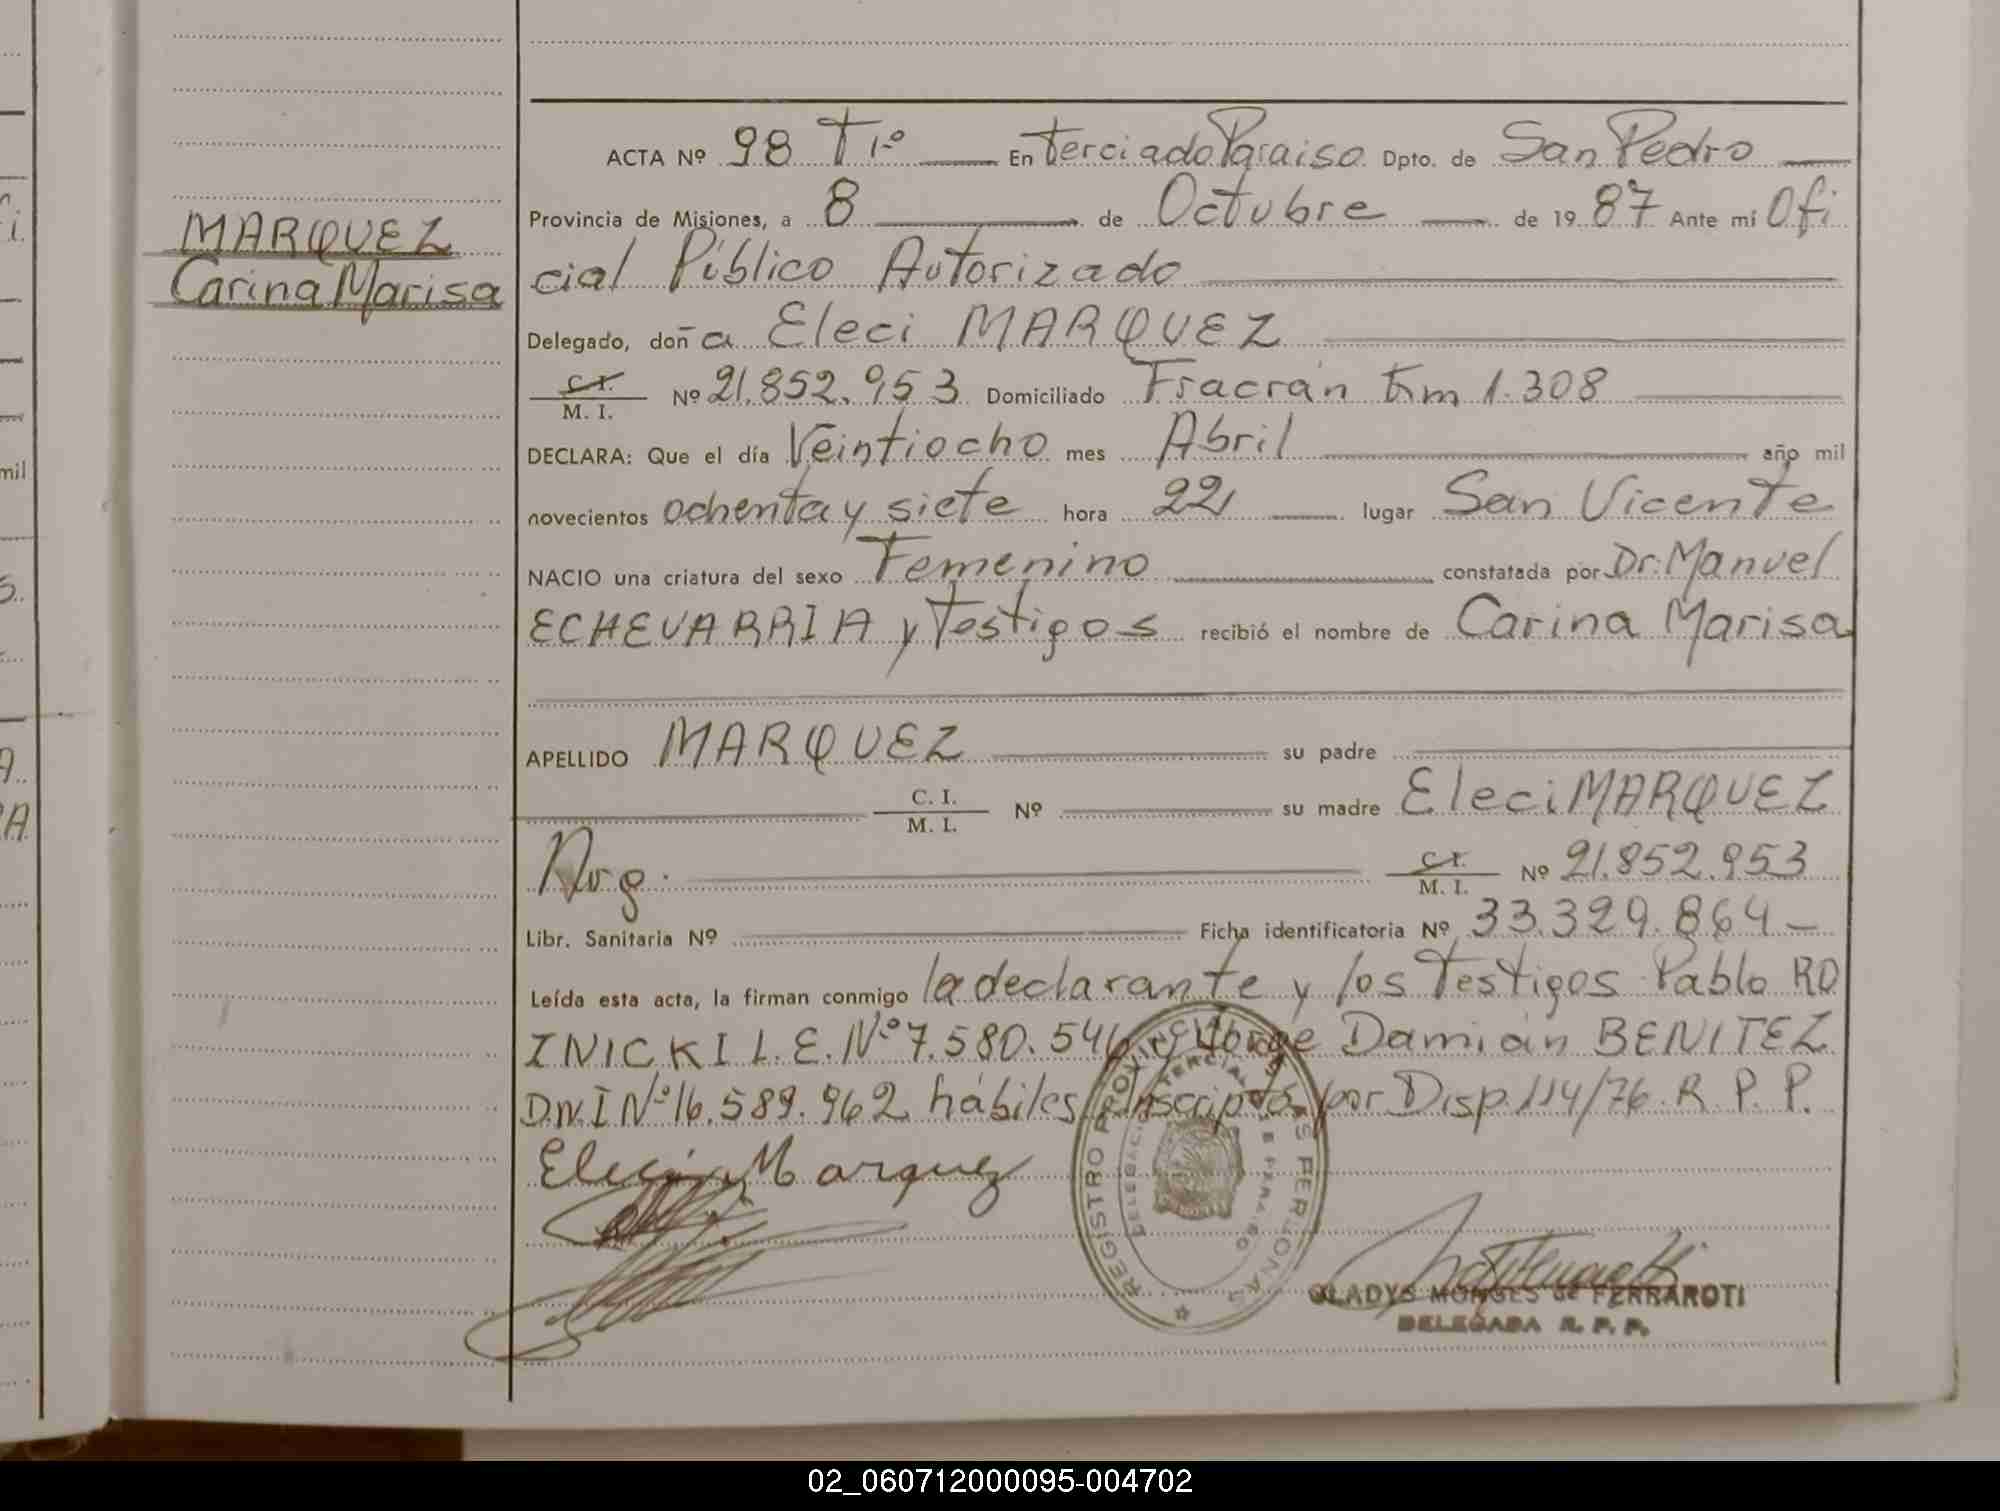 MARQUEZ
Carina Marisa
ACTA Nº 98 T 1º En Terciado Paraiso Dpto. de San Pedro
Provincia de Misiones, a 8 de Octubre de 1987 Ante mí Ofi
cial Público Autorizado
Delegado, doña Eleci MARQUEZ
C. I.
M. I. Nº 21.852.953 Domiciliado Fracrán Km 1.308
DECLARA: Que el día Veintiocho mes Abril año mil
novecientos ochenta y siete hora 22 lugar San Vicente
NACIO una criatura del sexo Femenino constatada por Dr. Manuel
ECHEVARRIA y Testigos recibió el nombre de Carina Marisa
APELLIDO MARQUEZ su padre
C. I.
M. I. Nº su madre Eleci MARQUEZ
Arg.
C. I.
M. I. Nº 21.852.953
Libr. Sanitaria Nº Ficha identificatoria Nº 33.329.864-
Leída esta acta, la firman conmigo la declarante y los Testigos Pablo RO
INICKI L.E. Nº 7.580.546 y Jorge Damián BENITEZ
D.N.I Nº 16.589.962 hábiles. Inscriptos por Disp. 114/76. R. P. P.
Eleci Marquez
REGISTRO PROVINCIAL DE LAS PERSONAS
DELEGACION TERCIADO PARAISO
GLADYS MONGES de FERRAROTI
DELEGADA R. P. P.
mil
02_060712000095-004702